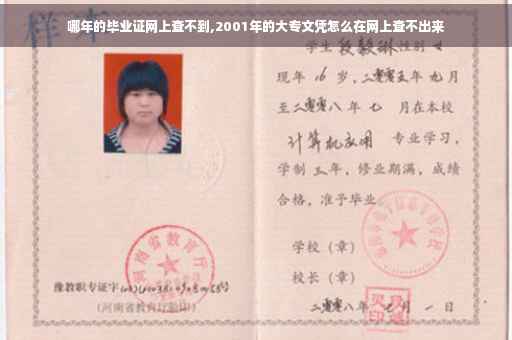 哪年的毕业证网上查不到,2001年的大专文凭怎么在网上查不出来
学生段毅琳性别女
现年16岁，二零零五年九月
至二零零八年七月在本校
计算机应用 专业学习，
学制三年，修业期满，成绩
合格，准予毕业
学校（章）
校长（章）
豫教职专证字
河南省教育厅
（河南省教育厅验印）
二零零八年七月一日